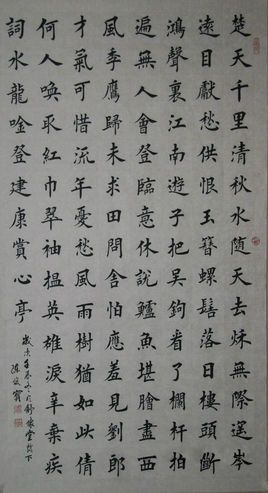 楚天千里清秋水随天去秌無際遥岑
遠目獻愁供恨玉簪螺髻落日樓頭斷
鴻聲裏江南遊子把吴鉤看了欄杆拍
遍無人會登臨意休說鱸魚堪膾盡西
風季鷹歸未求田問舍怕應羞見劉郎
才氣可惜流年憂愁風雨樹猶如此倩
何人喚取紅巾翠袖揾英雄淚辛棄疾
詞水龍唫登建康賞心亭